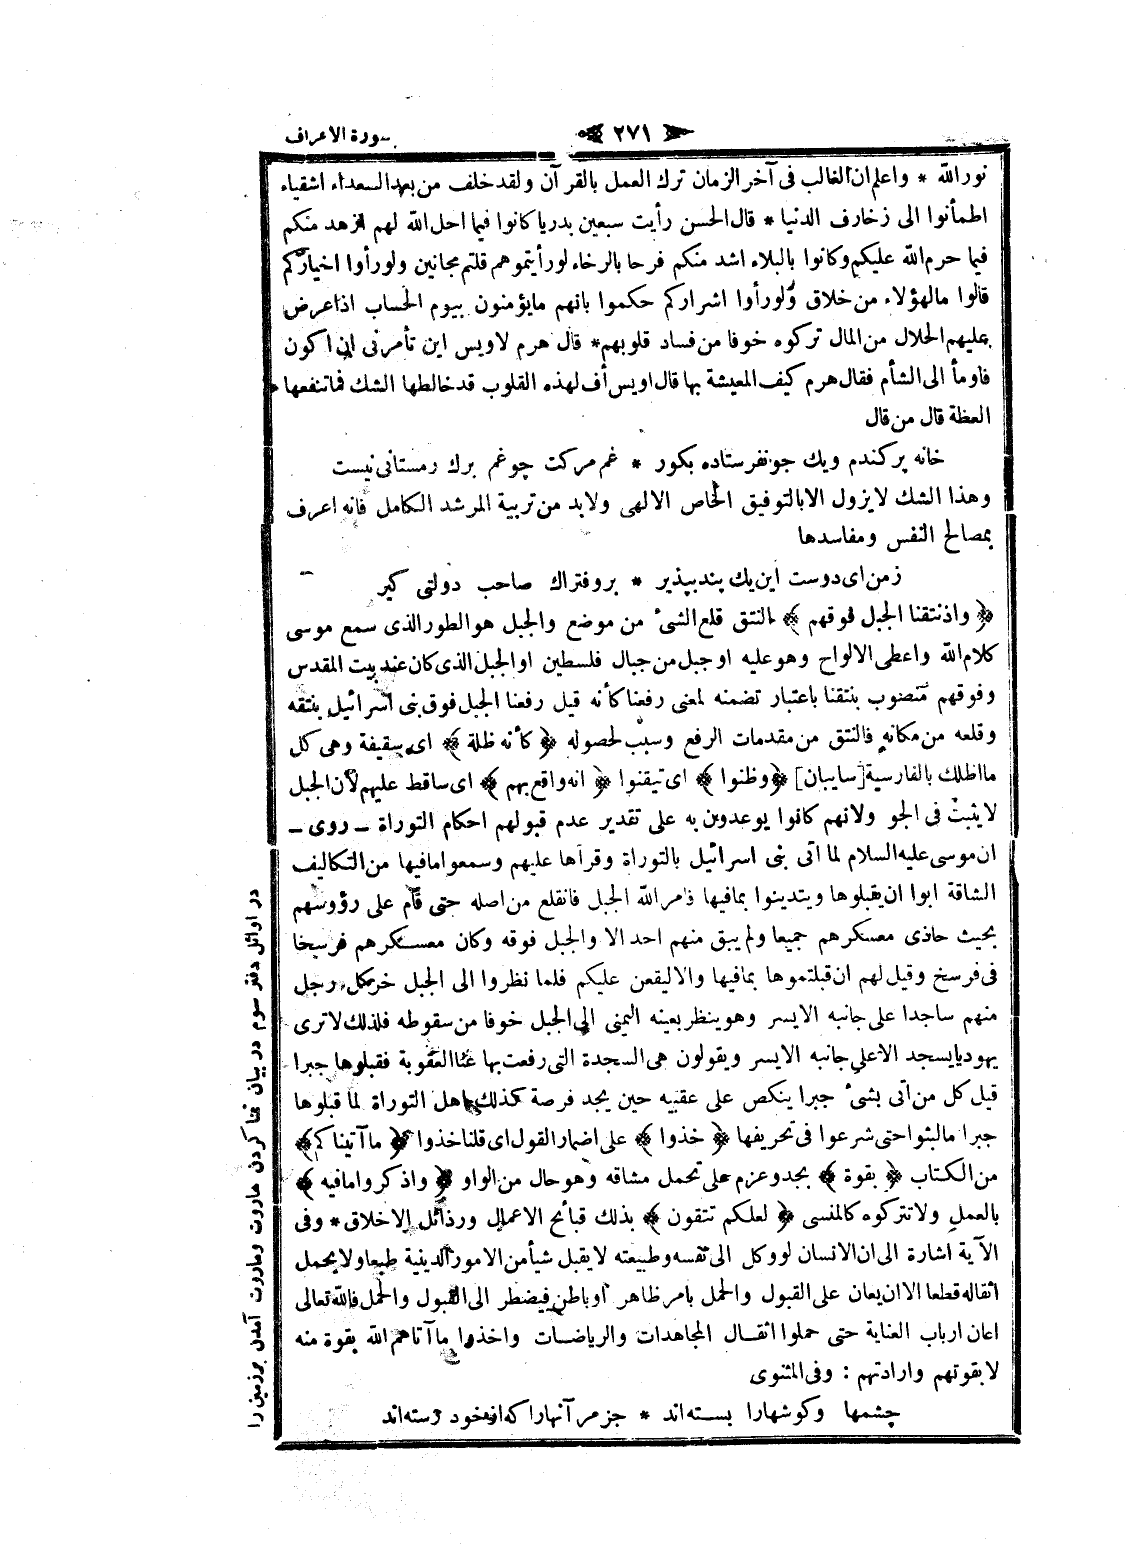 سورة الاعراف
٢٧١
نور الله * واعلم ان الغالب فى آخر الزمان ترك العمل بالقرآن ولقد خلف من بعد السعداء اشقياء
اطمأنوا الى زخارف الدنيا * قال الحسن رأيت سبعين بدريا كانوا فيما احل الله لهم ازهد منكم
فيما حرم الله عليكم وكانوا بالبلاء اشد منكم فرحا بالرخاء لو رأيتموهم قلتم مجانين ولو رأوا اخياركم
قالوا ما لهؤلاء من خلاق ولو رأوا اشراركم حكموا بانهم ما يؤمنون بيوم الحساب اذا عرض
عليهم الحلال من المال تركوه خوفا من فساد قلوبهم * قال هرم لاويس اين تأمرنى ان اكون
فاومأ الى الشأم فقال هرم كيف المعيشة بها قال اويس أف لهذه القلوب قد خالطها الشك فما تنفعها
العظة قال من قال
خانه پركندم ويك جو نفرستاده بكور * غم مركت چو غم برك زمستانى نيست
وهذا الشك لا يزول الا بالتوفيق الخاص الالهى ولا بد من تربية المرشد الكامل فانه اعرف
بمصالح النفس ومفاسدها
ز من اى دوست اين يك پند بپذير * برو فتراك صاحب دولتى كير
﴿ واذ نتقنا الجبل فوقهم ﴾ النتق قلع الشئ من موضع والجبل هو الطور الذى سمع موسى
كلام الله واعطى الالواح وهو عليه او جبل من جبال فلسطين او الجبل الذى كان عند بيت المقدس
وفوقهم منصوب بنتقنا باعتبار تضمنه لمعنى رفعنا كأنه قيل رفعنا الجبل فوق بنى اسرائيل بنتقه
وقلعه من مكانه فالنتق من مقدمات الرفع وسبب لحصوله ﴿ كأنه ظلة ﴾ اى سقيفة وهى كل
ما اظلك بالفارسية [سايبان] ﴿ وظنوا ﴾ اى تيقنوا ﴿ انه واقع بهم ﴾ اى ساقط عليهم لأن الجبل
لا يثبت فى الجو ولانهم كانوا يوعدون به على تقدير عدم قبولهم احكام التوراة ـ روى ـ
ان موسى عليه السلام لما اتى بنى اسرائيل بالتوراة وقرأها عليهم وسمعوا ما فيها من التكاليف
الشاقة ابوا ان يقبلوها ويتدينوا بما فيها فامر الله الجبل فانقلع من اصله حتى قام على رؤوسهم
بحيث حاذى معسكرهم جميعا ولم يبق منهم احد الا والجبل فوقه وكان معسكرهم فرسخا
فى فرسخ وقيل لهم ان قبلتموها بما فيها والا ليقعن عليكم فلما نظروا الى الجبل خر كل رجل
منهم ساجدا على جانبه الايسر وهو ينظر بعينه اليمنى الى الجبل خوفا من سقوطه فلذلك لا ترى
يهوديا يسجد الا على جانبه الايسر ويقولون هى السجدة التى رفعت بها عنا العقوبة فقبلوها جبرا
قيل كل من اتى بشئ جبرا ينكص على عقبيه حين يجد فرصة كذلك اهل التوراة لما قبلوها
جبرا ما لبثوا حتى شرعوا فى تحريفها ﴿ خذوا ﴾ على اضمار القول اى قلنا خذوا ﴿ ما آتيناكم ﴾
من الكتاب ﴿ بقوة ﴾ بجد وعزم على تحمل مشاقه وهو حال من الواو ﴿ واذكروا ما فيه ﴾
بالعمل ولا تتركوه كالمنسى ﴿ لعلكم تتقون ﴾ بذلك قبائح الاعمال ورذائل الاخلاق * وفى
الآية اشارة الى ان الانسان لو وكل الى نفسه وطبيعته لا يقبل شيأ من الامور الدينية طبعا ولا يحمل
اثقاله قطعا الا ان يعان على القبول والحمل بامر ظاهر او باطن فيضطر الى القبول والحمل فالله تعالى
اعان ارباب العناية حتى حملوا اثقال المجاهدات والرياضات واخذوا ما آتاهم الله بقوة منه
لا بقوتهم وارادتهم : وفى المثنوى
چشمها وكوشهارا بسته اند * جز مر آنهارا كه از خود رسته اند
در اوائل دفتر سوم در بيان تمنا كردن هاروت وماروت آمدن برزمين را